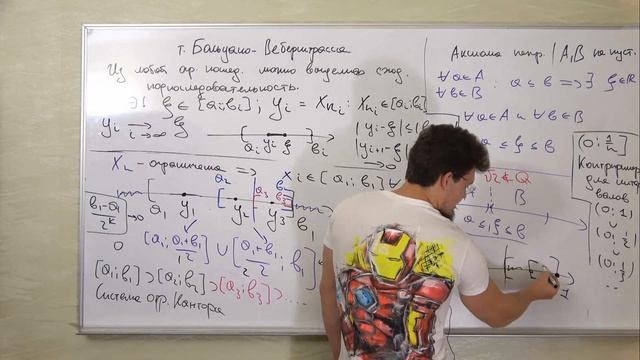 т. Больцано-Вейерштрасса
Из любой огр. послед. можно выделить сход.
подпоследовательность.
∃! ξ ∈ [aᵢ; bᵢ] ; yᵢ = xₙᵢ : xₙᵢ ∈ [aᵢ; bᵢ]
yᵢ → ξ
i→∞
aᵢ yᵢ ξ bᵢ
|yᵢ - ξ| ≤
→ 0
xₙ - ограничена =>
xᵢ ∈ [a₁; b₁] ∀
a₂ a₃ b₃ b₂
a₁ y₁ y₂ y₃ b₁
(b₁-a₁)/2ᵏ → 0
[a₁; (a₁+b₁)/2] ∪ [(a₁+b₁)/2; b₁]
[a₁; b₁] ⊃ [a₂; b₂] ⊃ [a₃; b₃] ⊃ ...
Система отр. Кантора
Аксиома непр. | A, B не пуст.
∀a∈A
∀b∈B : a ≤ b => ∃ ξ∈ℝ
∀a∈A и ∀b∈B
a ≤ ξ ≤ b
√2 ∉ Q
B
a ≤ ξ ≤ b
[0; 1/2]
Контрпример
для интер
валов
(0; 1)
∪
(0; 1/2)
∪
(0; 1/3)
..
1